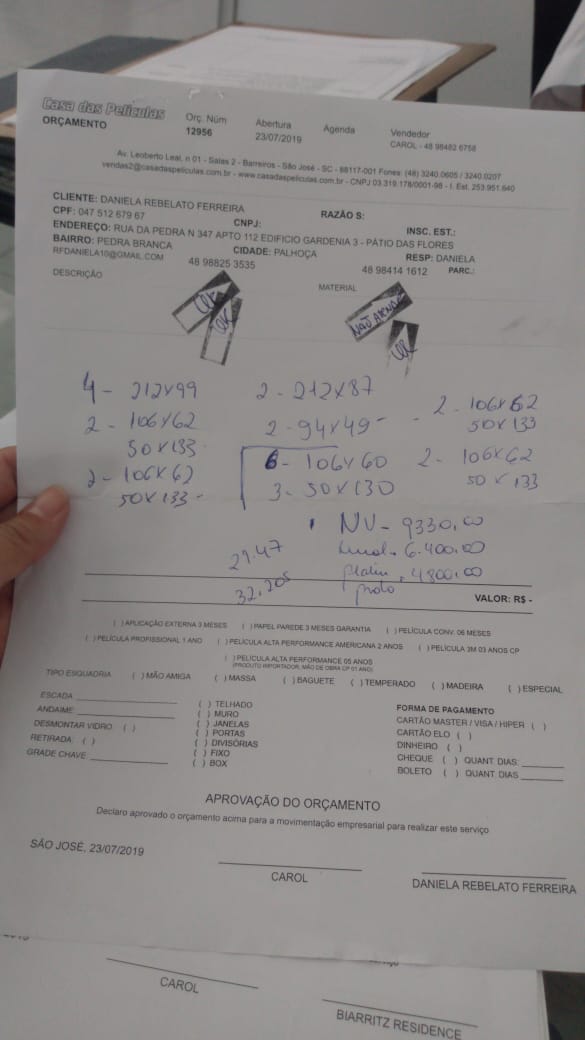 Casa das Películas
ORÇAMENTO
Orç. Núm
12956
Abertura
23/07/2019
Agenda
Vendedor
CAROL - 48 98482 6758
Av. Leoberto Leal, n 01 - Salas 2 - Barreiros - São José - SC - 88117-001 Fones: (48) 3240.0605 / 3240.0207
vendas2@casadaspeliculas.com.br - www.casadaspeliculas.com.br - CNPJ 03.319.178/0001-98 - I. Est. 253.951.640
CLIENTE: DANIELA REBELATO FERREIRA RAZÃO S:
CPF: 047 512 679 67 CNPJ: INSC. EST.:
ENDEREÇO: RUA DA PEDRA N 347 APTO 112 EDIFICIO GARDENIA 3 - PÁTIO DAS FLORES
BAIRRO: PEDRA BRANCA CIDADE: PALHOÇA RESP: DANIELA
RFDANIELA10@GMAIL.COM 48 98825 3535 48 98414 1612 PARC.:
DESCRIÇÃO MATERIAL
OK
OK
NÃO ATENDE
OK
4 - 212x99 2 - 212x87
2 - 106x62 2 - 94x49 - 2 - 106x62
50x133 50x133
2 - 106x62 6 - 106x60 2 - 106x62
50x133 3 - 50x130 50x133
NV - 9330,00
29.47 6.400.00
32,205 4800.00
VALOR: R$ -
( ) APLICAÇÃO EXTERNA 3 MESES ( ) PAPEL PAREDE 3 MESES GARANTIA ( ) PELÍCULA CONV. 06 MESES
( ) PELÍCULA PROFISSIONAL 1 ANO ( ) PELÍCULA ALTA PERFORMANCE AMERICANA 2 ANOS ( ) PELÍCULA 3M 03 ANOS CP
( ) PELÍCULA ALTA PERFORMANCE 05 ANOS
(PRODUTO IMPORTADOR, MÃO DE OBRA CP 01 ANO)
TIPO ESQUADRIA ( ) MÃO AMIGA ( ) MASSA ( ) BAGUETE ( ) TEMPERADO ( ) MADEIRA ( ) ESPECIAL
ESCADA
ANDAIME
DESMONTAR VIDRO: ( )
RETIRADA: ( )
GRADE CHAVE:
( ) TELHADO
( ) MURO
( ) JANELAS
( ) PORTAS
( ) DIVISÓRIAS
( ) FIXO
( ) BOX
FORMA DE PAGAMENTO
CARTÃO MASTER / VISA / HIPER ( )
CARTÃO ELO ( )
DINHEIRO ( )
CHEQUE ( ) QUANT DIAS:
BOLETO ( ) QUANT. DIAS
APROVAÇÃO DO ORÇAMENTO
Declaro aprovado o orçamento acima para a movimentação empresarial para realizar este serviço
SÃO JOSÉ, 23/07/2019
CAROL
DANIELA REBELATO FERREIRA
CAROL
BIARRITZ RESIDENCE